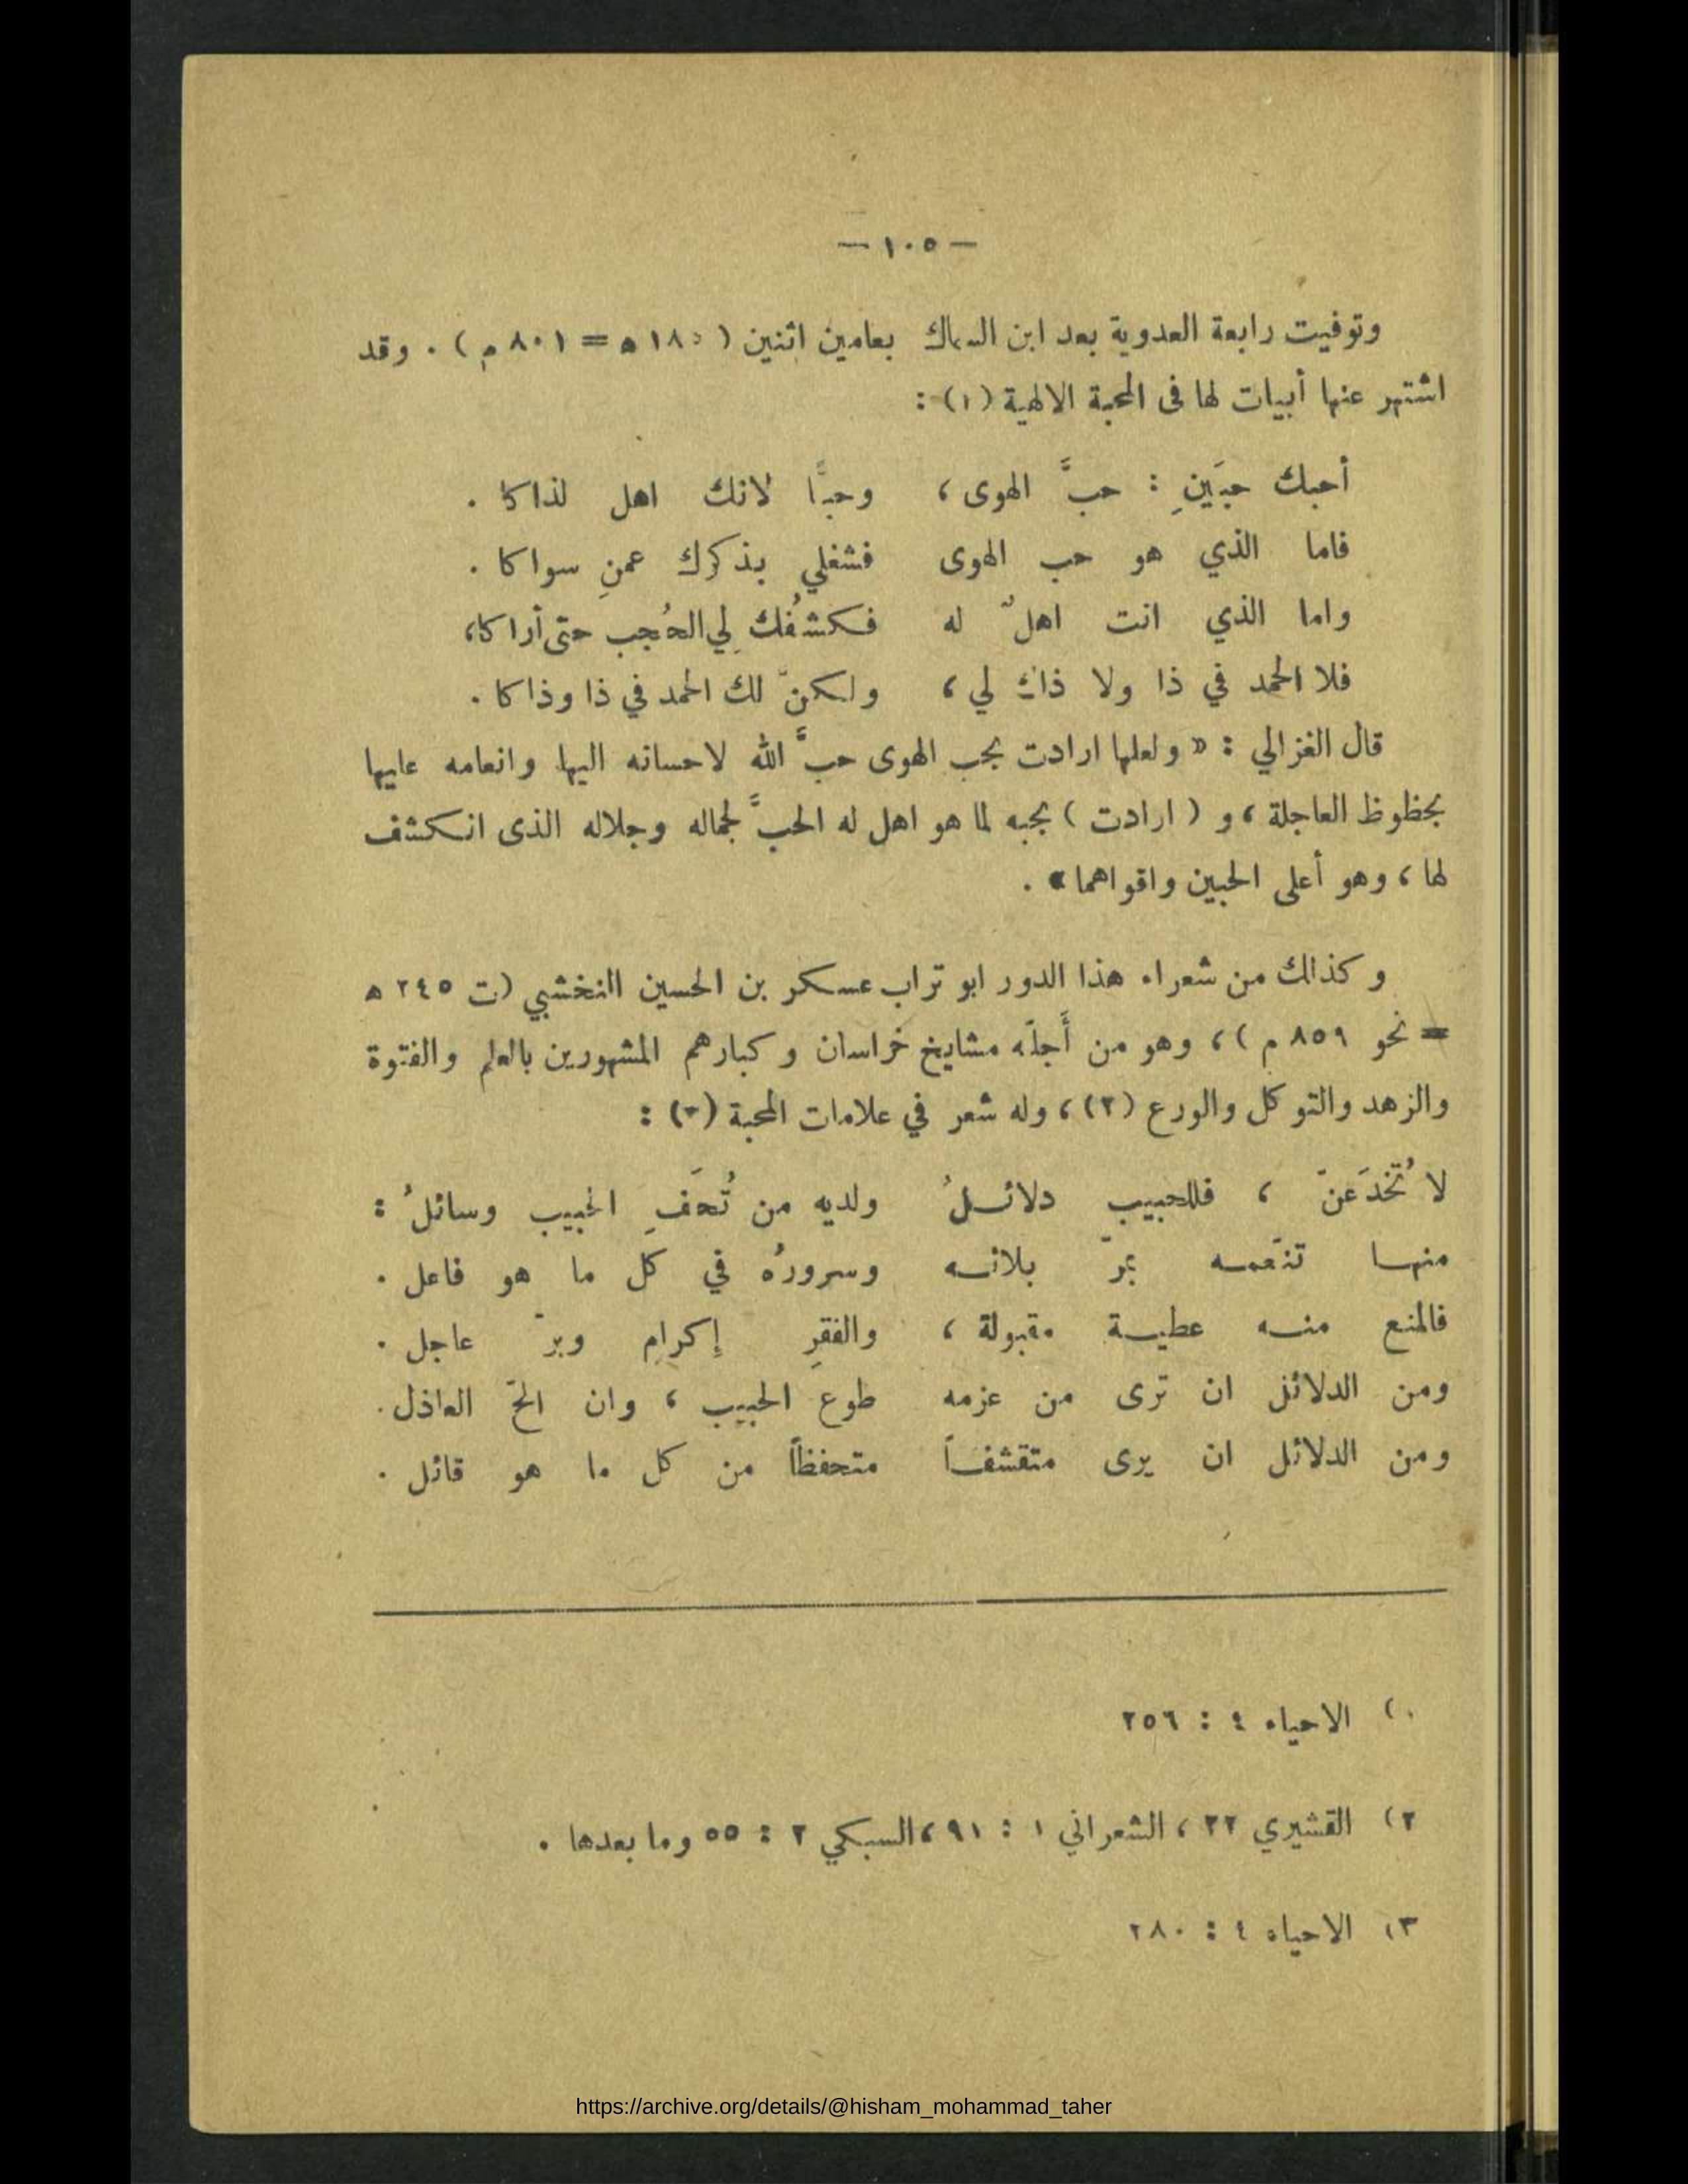 — ١٠٥ —
وتوفيت رابعة العدوية بعد ابن السماك بعامين اثنين ( ١٨٥ ه = ٨٠١ م ) . وقد
اشتهر عنها أبيات لها فى المحبة الالهية (١) :
أحبك حبَينِ : حبَّ الهوى ، وحبًّا لانك اهل لذاكا .
فاما الذي هو حب الهوى فشغلي بذكرك عمنِ سواكا .
واما الذي انت اهلٌ له فكشفُك لِي الحُجب حتى أراكا،
فلا الحمد في ذا ولا ذاك لي ، ولكنّ لك الحمد في ذا وذاكا .
قال الغزالي : « ولعلها ارادت بحب الهوى حبَّ الله لاحسانه اليها وانعامه عليها
بحظوظ العاجلة ، و ( ارادت ) بحبه لما هو اهل له الحبَّ لجماله وجلاله الذى انكشف
لها ، وهو أعلى الحبين واقواهما » .
وكذالك من شعراء هذا الدور ابو تراب عسكر بن الحسين النخشبي (ت ٢٤٥ ه
= نحو ٨٥٩ م ) ، وهو من أَجلّه مشايخ خراسان وكبارهم المشهورين بالعلم والفتوة
والزهد والتوكل والورع (٢) ، وله شعر في علامات المحبة (٣) :
لا تُخدَعنّ ، فللحبيب دلائلُ ولديه من تُحَفِ الحبيب وسائلُ :
منها تنعّمه بمرّ بلائه وسرورُه في كل ما هو فاعل .
فالمنع منه عطية مقبولة ، والفقرِ إكرام وبرّ عاجل .
ومن الدلائل ان ترى من عزمه طوع الحبيب ، وان الحّ العاذل .
ومن الدلائل ان يرى متقشفاً متحفظاً من كل ما هو قائل .
١) الاحياء ٤ : ٢٥٦
٢) القشيري ٢٢ ، الشعراني ١ : ٩١ ، السبكي ٢ : ٥٥ وما بعدها .
٣) الاحياء ٤ : ٢٨٠
https://archive.org/details/@hisham_mohammad_taher